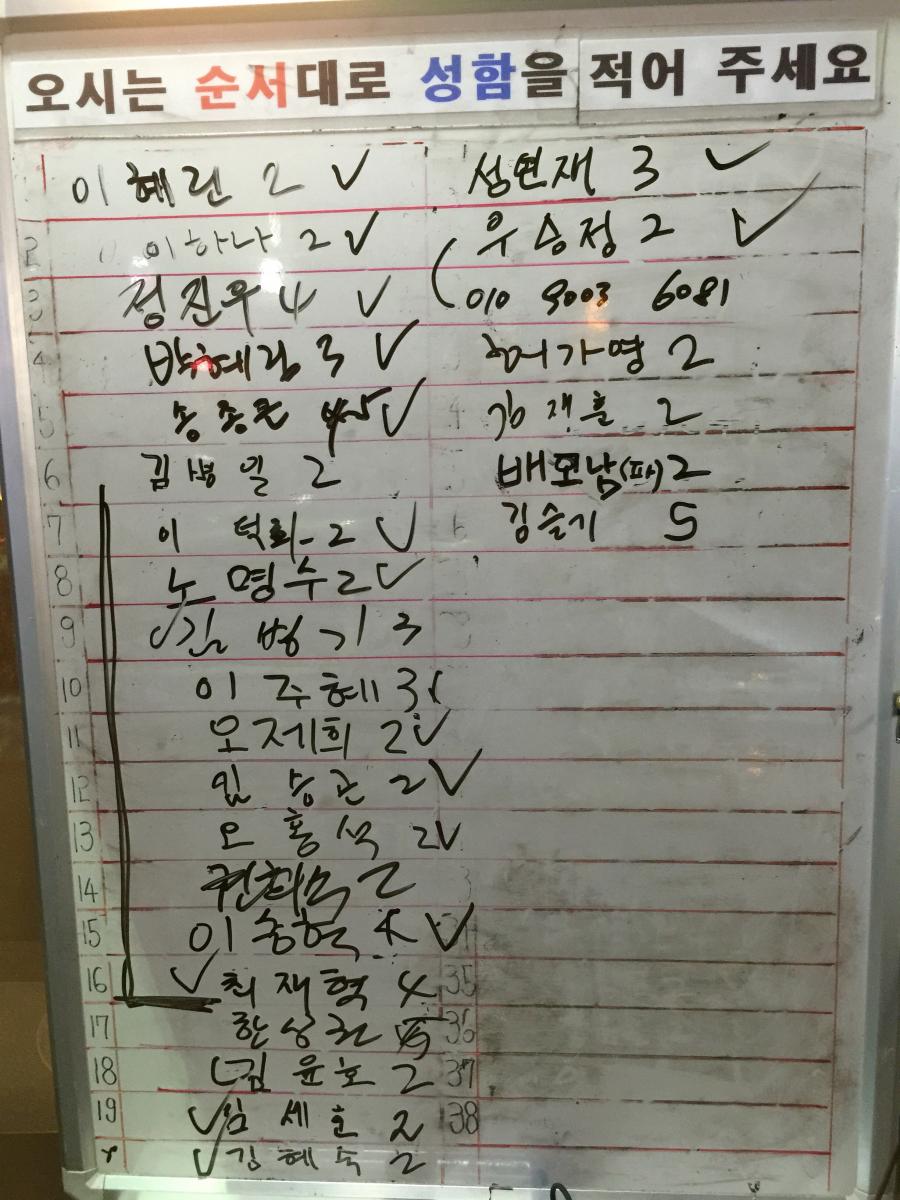 오시는 순서대로 성함을 적어 주세요
이혜린 2 ✓
2 이하나 2 ✓
3 정진우 4 ✓
4 박혜림 3 ✓
5 ✓
6 김병일 2
7 이덕희-2 ✓
8 노명수 2 ✓
9 ✓ 김병기 3
10 이주혜 3
11 오제희 2 ✓
12 임승근 2 ✓
13 오홍석 2 ✓
14 2
15 이승혁 4 ✓
16 ✓ 최재혁 4
17 한상권 5
18 김윤호 2
19 ✓ 임세훈 2
✓ 김혜숙 2
성연재 3 ✓
우승정 2 ✓
010 9003 6081
허가영 2
김재훈 2
배모남(파) 2
김슬기 5
35
36
37
38